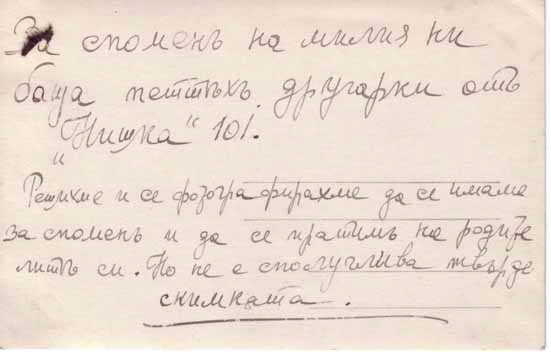 За споменъ на милия ни
баща петтѣхъ другарки отъ
„Нишка" 101.
Решихме и се фозографирахме да се имаме
за споменъ и да се пратимъ на родите
литѣ си. Но не е сполучлива твърде
снимката.